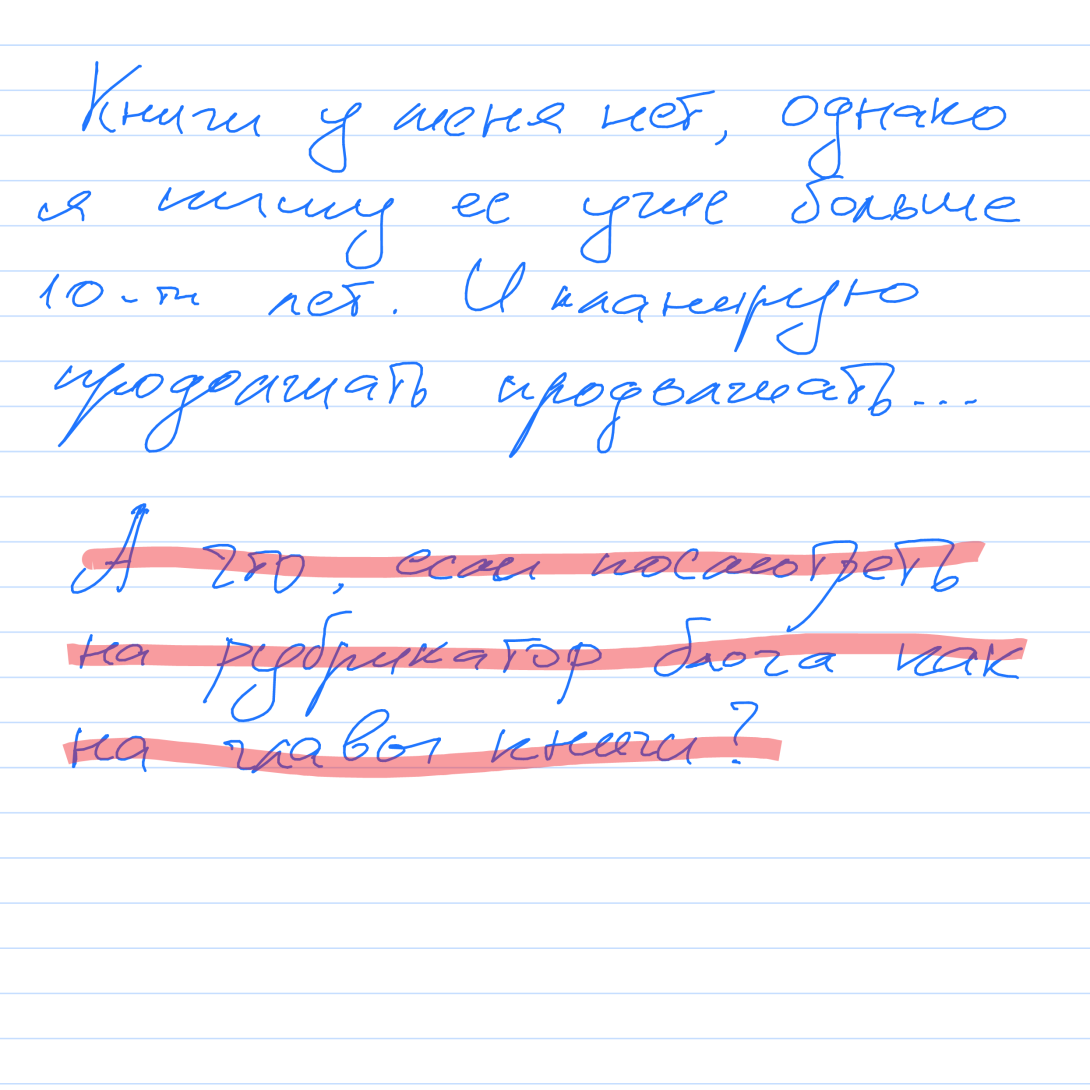 Книги у меня нет, однако
я пишу ее уже больше
10-ти лет. И планирую
продолжать продолжать...
А что, если посмотреть
на рубрикатор блога как
на главы книги?